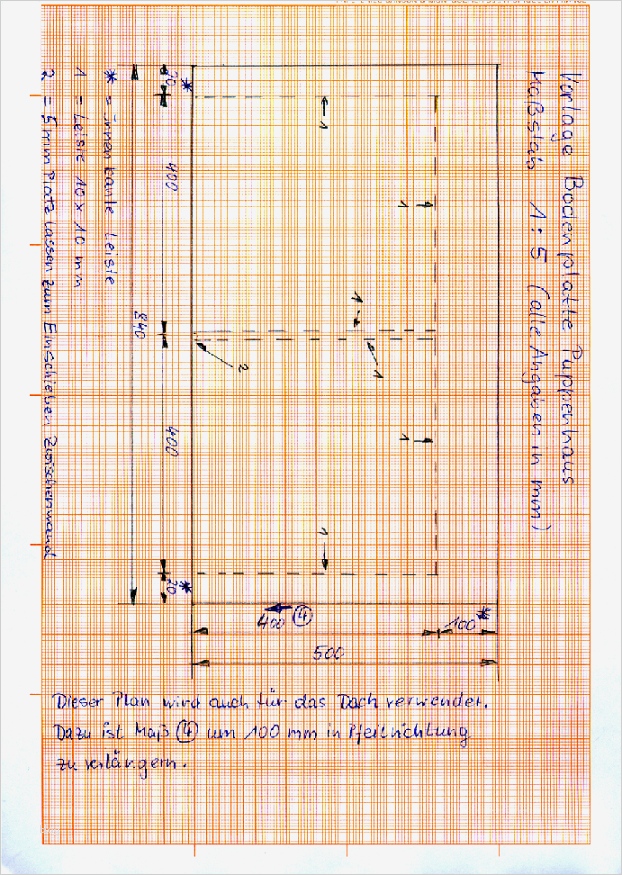 Vorlage Bodenplatte Puppenhaus
Maßstab 1:5 (alle Angaben in mm)
1
1
1
1
1
1
2
20
400
840
400
20
* = Innenkante Leiste
1 = Leiste 10 x 10 mm
2 = 5 mm Platz lassen zum Einschieben Zwischenwand
*
*
*
4
400
100
500
Dieser Plan wird auch für das Dach verwendet.
Dazu ist Maß 4 um 100 mm in Pfeilrichtung
zu verlängern.